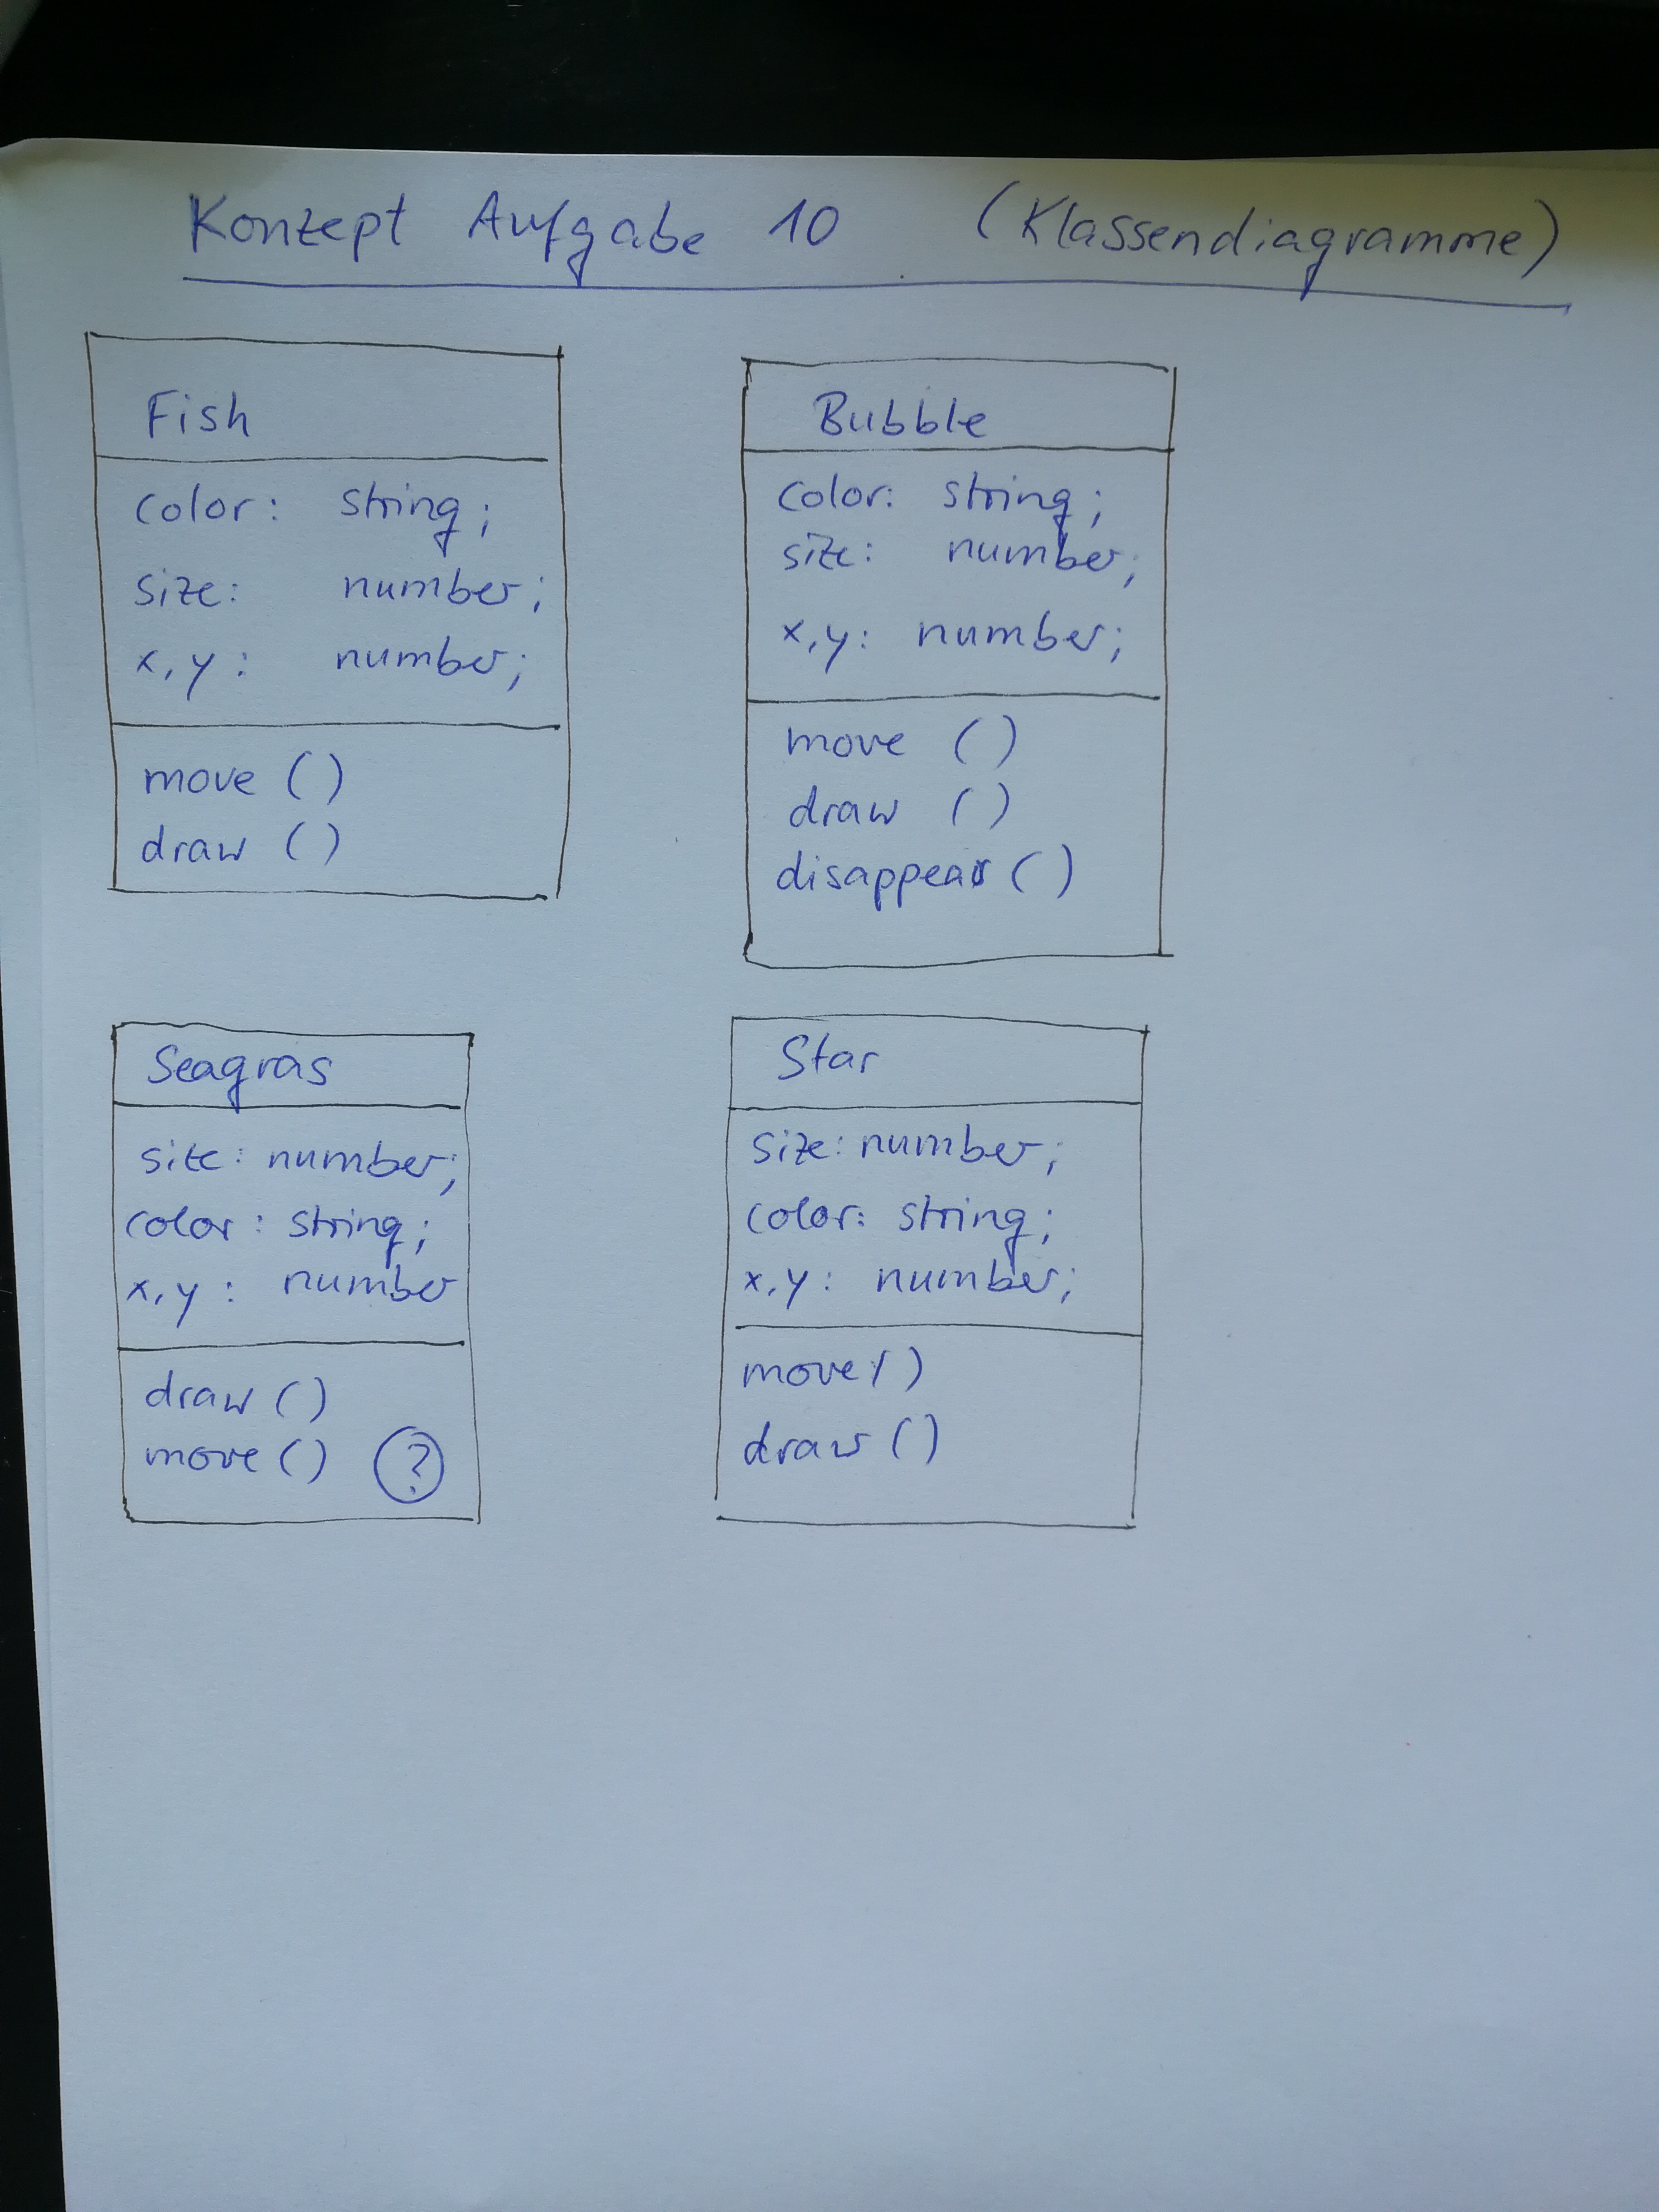 Konzept Aufgabe 10 (Klassendiagramme)
Fish
color: string;
size: number;
x,y: number;
move ()
draw ()
Bubble
color: string;
size: number;
x,y: number;
move ()
draw ()
disappear ()
Seagras
size: number;
color: string;
x,y: number
draw ()
move () ?
Star
size: number;
color: string;
x,y: number;
move ()
draw ()